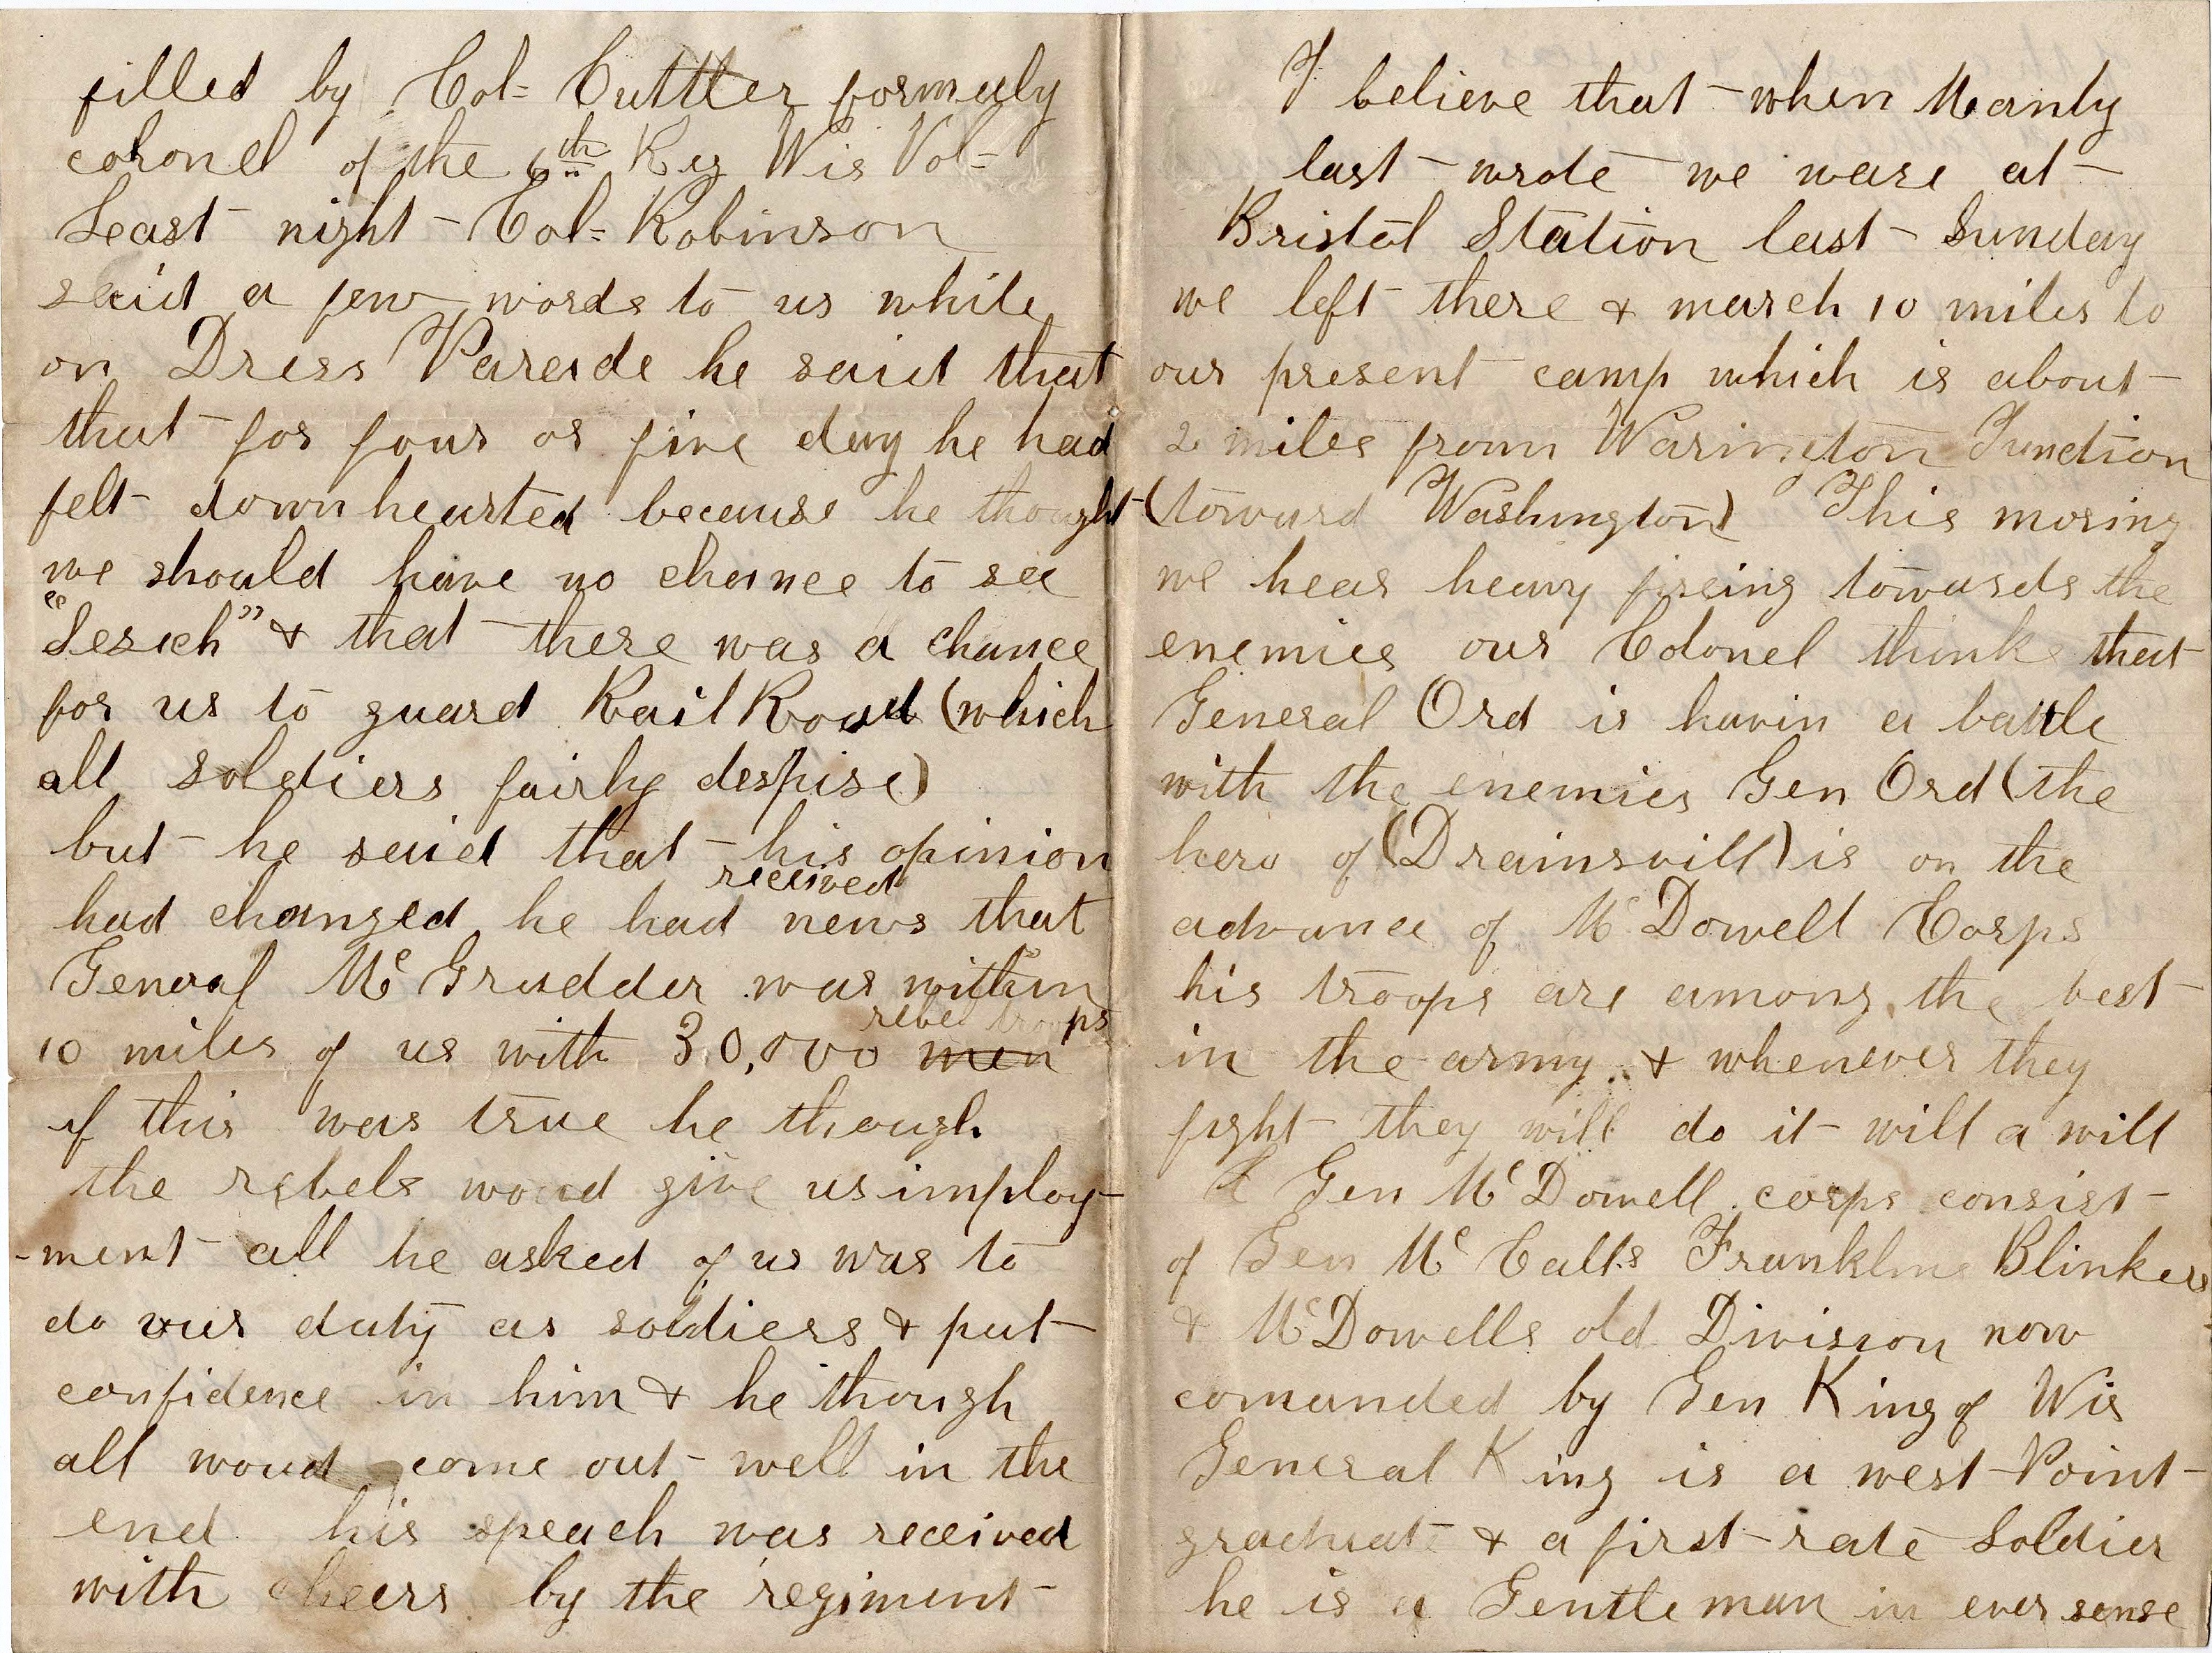 filled by Col= Cuttler formerly
colonel of the 6th Reg Wis Vol=
Least night Col= Robinson
said a few words to us while
on Dress Parade he said that
that for four or five day he had
felt downhearted because he thought
we should have no chance to see
"Sesich" & that there was a chance
for us to guard Rail Road (which
all soldiers fairly despise)
but he said that his opinion
had changed he had received news that
General McGrudder was within
10 miles of us with 30,000 men rebel troops
if this was true he though
the rebels woud give us imploy-
-ment all he asked of us was to
do our duty as soldiers & put
confidence in him & he though
all woud come out well in the
end his speach was received
with cheers by the regiment
I believe that when Manly
last wrote we ware at
Bristol Station last Sunday
we left there & march 10 miles to
our present camp which is about
2 miles from Warington Junction
(toward Washington) This moring
we hear heavy fireing towards the
enemies our Colonel thinks that
General Ord is havin a battle
with the enemies Gen Ord (the
hero of (Drainsvill) is on the
advance of McDowell Corps
his troops are among the best
in the army & whenever they
fight they will do it will a will
Gen McDowell corps consist
of Gen McCalls Franklins Blinkers
& McDowells old Division now
comanded by Gen King of Wis
General King is a west Point
graduate & a first rate Soldier
he is a Gentleman in ever sense